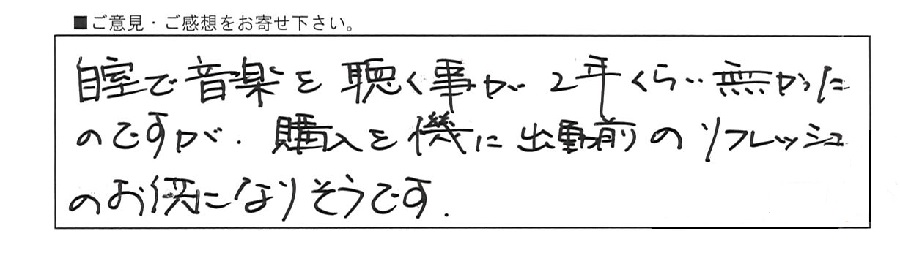 ■ご意見・ご感想をお寄せ下さい。
自室で音楽を聴く事が2年くらい無かった
のですが、購入を機に出勤前のリフレッシュ
のお供になりそうです.